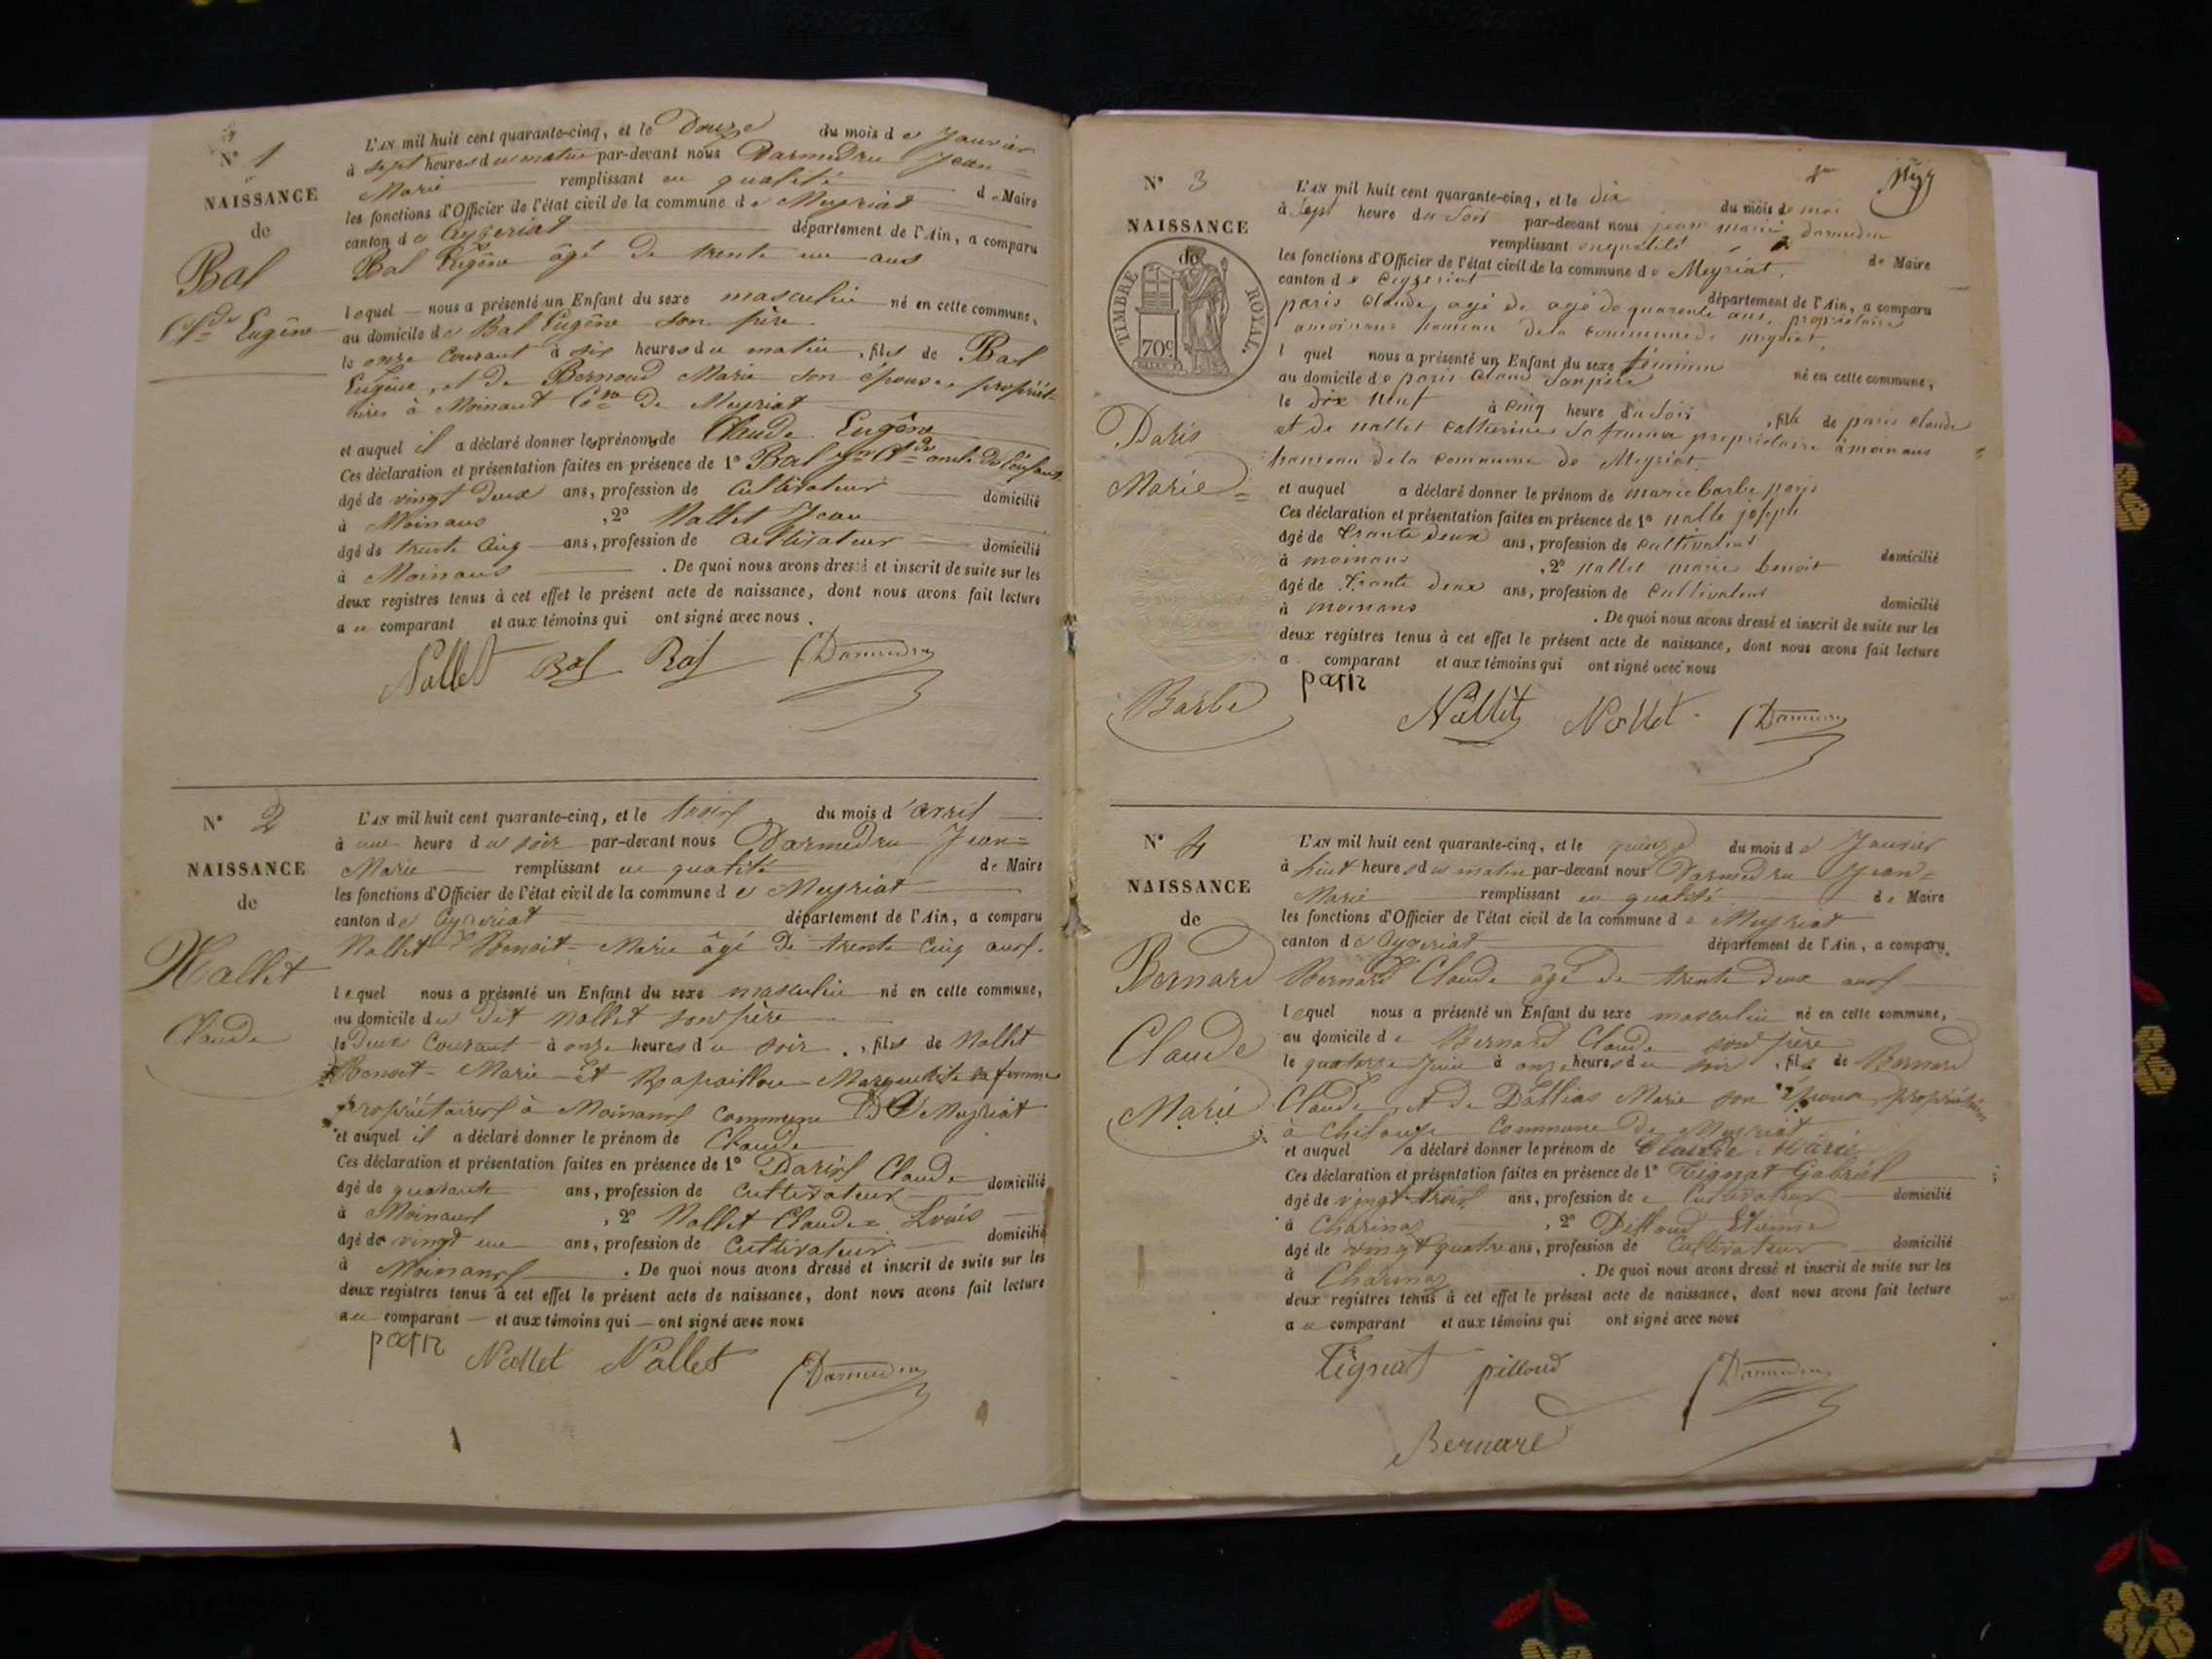 N° 1
NAISSANCE
de
Bal
Cde Eugène
L'AN mil huit cent quarante-cinq, et le Douze du mois de Janvier
à sept heures du matin par-devant nous Darmedru Jean-
Marie remplissant en qualité de Maire
les fonctions d'Officier de l'état civil de la commune de Meyriat
canton de Ceyzeriat département de l'Ain, a comparu
Bal Eugène âgé de trente un ans
lequel nous a présenté un Enfant du sexe masculin né en cette commune,
au domicile de Bal Eugène son père
le onze Courant à six heures du matin, fils de Bal
Eugène, et de Bernoud Marie son épouse propriét-
aires à Moinant Cne De Meyriat
et auquel il a déclaré donner les prénoms de Claude Eugène
Ces déclaration et présentation faites en présence de 1° Bal oncle de l'enfant
âgé de vingt deux ans, profession de Cultivateur domicilié
à Moinans, 2° Nallet Jean
âgé de trente cinq ans, profession de Cultivateur domicilié
à Moinans. De quoi nous avons dressé et inscrit de suite sur les
deux registres tenus à cet effet le présent acte de naissance, dont nous avons fait lecture
au comparant et aux témoins qui ont signé avec nous.
Nallet Bal Bal Darmedru
N° 2
NAISSANCE
de
Nallet
Claude
L'AN mil huit cent quarante-cinq, et le trois du mois d'avril
à une heure du soir par-devant nous Darmedru Jean-
Marie remplissant en qualité de Maire
les fonctions d'Officier de l'état civil de la commune de Meyriat
canton de Ceyzeriat département de l'Ain, a comparu
Nallet Benoit-Marie âgé de trente cinq ans.
lequel nous a présenté un Enfant du sexe masculin né en cette commune,
au domicile du dit Nallet son père
le Deux Courant à onze heures du soir, fils de Nallet
Benoit-Marie et Rapaillon Marguerite sa femme
propriétaires à Moinans commune De Meyriat
et auquel il a déclaré donner le prénom de Claude
Ces déclaration et présentation faites en présence de 1° Paris Claude domicilié
âgé de quarante ans, profession de Cultivateur
à Moinans, 2° Nallet Claude Louis
âgé de vingt une ans, profession de Cultivateur domicilié
à Moinans. De quoi nous avons dressé et inscrit de suite sur les
deux registres tenus à cet effet le présent acte de naissance, dont nous avons fait lecture
au comparant et aux témoins qui ont signé avec nous
paris Nallet Nallet Darmedru
N° 3
NAISSANCE
de
TIMBRE ROYAL.
70c
Paris
Marie
Barbe
L'AN mil huit cent quarante-cinq, et le dix du mois de mai
à sept heure du soir par-devant nous jean marie darmedru
remplissant en qualité de Maire
les fonctions d'Officier de l'état civil de la commune de Meyriat,
canton de Ceyzeriat département de l'Ain, a comparu
paris Claude, agé de agé de quarente ans, propriétaire
amoinans hameau de la commune de meyriat,
l quel nous a présenté un Enfant du sexe féminin né en cette commune,
au domicile de paris Claud son père
le dix neuf à cinq heure du soir, fille de paris Claude
et de nallet Catherine sa femme propriétaire à moinans
hameau de la commune de Meyriat
et auquel a déclaré donner le prénom de marie barbe paris
Ces déclaration et présentation faites en présence de 1° nalle joseph
âgé de trante deux ans, profession de cultivateur domicilié
à moinans, 2° nallet marie benoit
âgé de trante deux ans, profession de cultivateur domicilié
à moinans. De quoi nous avons dressé et inscrit de suite sur les
deux registres tenus à cet effet le présent acte de naissance, dont nous avons fait lecture
a comparant et aux témoins qui ont signé avec nous
paris Nallet Nallet Darmedru
N° 4
NAISSANCE
de
Bernard
Claude
Marie
L'AN mil huit cent quarante-cinq, et le quinze du mois de Janvier
à huit heures du matin par-devant nous Darmedru Jean-
Marie remplissant en qualité de Maire
les fonctions d'Officier de l'état civil de la commune de Meyriat
canton de Ceyzeriat département de l'Ain, a comparu
Bernard Claude âgé de trente deux ans
lequel nous a présenté un Enfant du sexe masculin né en cette commune,
au domicile de Bernard Claude son père
le quatorze Juin à onze heures du soir, fils de Bernard
Claude, et de Dallias Marie son épouse propriétaires
à Commune De Meyriat
et auquel a déclaré donner le prénom de Claude Marie
Ces déclaration et présentation faites en présence de 1° Tignat Gabriel
âgé de vingt trois ans, profession de Cultivateur domicilié
à Charinas, 2° Pilloud Etienne
âgé de vingt quatre ans, profession de Cultivateur domicilié
à Charinas. De quoi nous avons dressé et inscrit de suite sur les
deux registres tenus à cet effet le présent acte de naissance, dont nous avons fait lecture
au comparant et aux témoins qui ont signé avec nous
Tignat pilloud Darmedru
Bernard